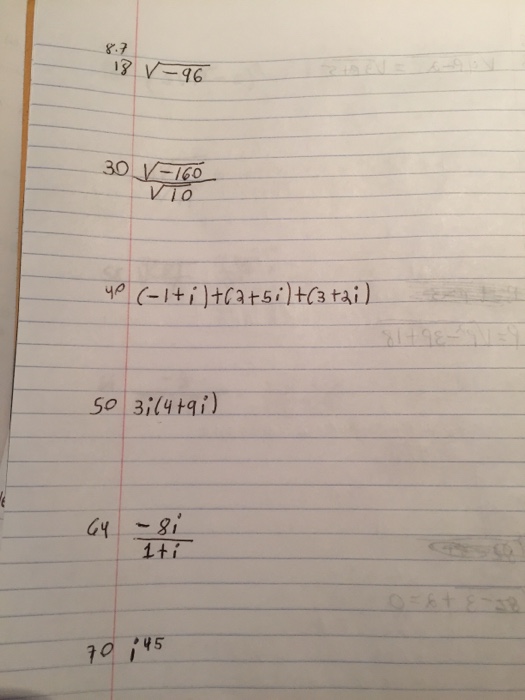 8.7
18 √-96
30 √-160
√10
40 (-1+i)+(2+5i)+(3+2i)
50 3i(4+9i)
64 -8i
1+i
70 i^45